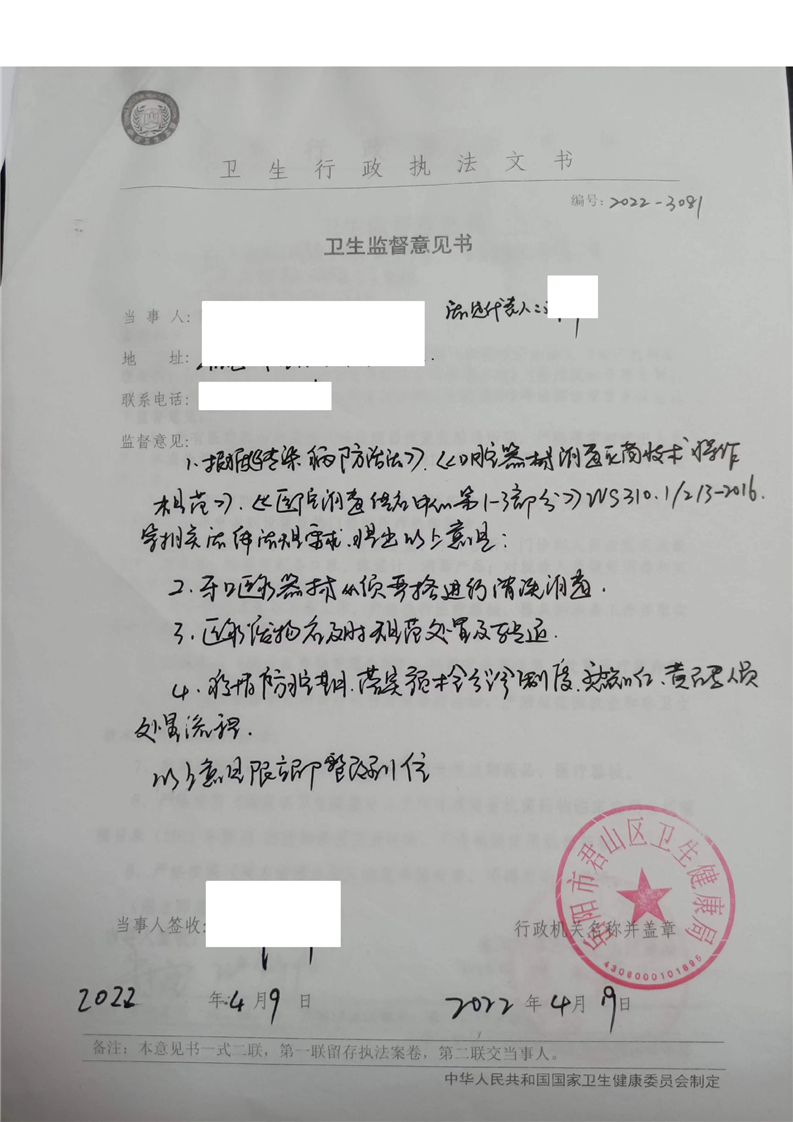 卫生行政执法文书
编号：2022-3081
卫生监督意见书
当 事 人： 法定代表人：
地 址：
联系电话：
监督意见：
1、根据《传染病防治法》、《口腔器械消毒灭菌技术操作
规范》、《医院消毒供应中心第1-3部分》WS310.1/2/3-2016.
等相关法律法规要求，提出以上意见：
2、牙口医疗器械必须严格进行清洗消毒.
3、医疗废物应及时规范处置及转运.
4、疫情防控期，落实预检分诊制度，红、黄码人员
处置流程.
以上意见限立即整改到位
当事人签收：
行政机关名称并盖章
岳阳市君山区卫生健康局
4306000101895
2022 年 4 月 9 日
2022 年 4 月 9 日
备注：本意见书一式二联，第一联留存执法案卷，第二联交当事人。
中华人民共和国国家卫生健康委员会制定